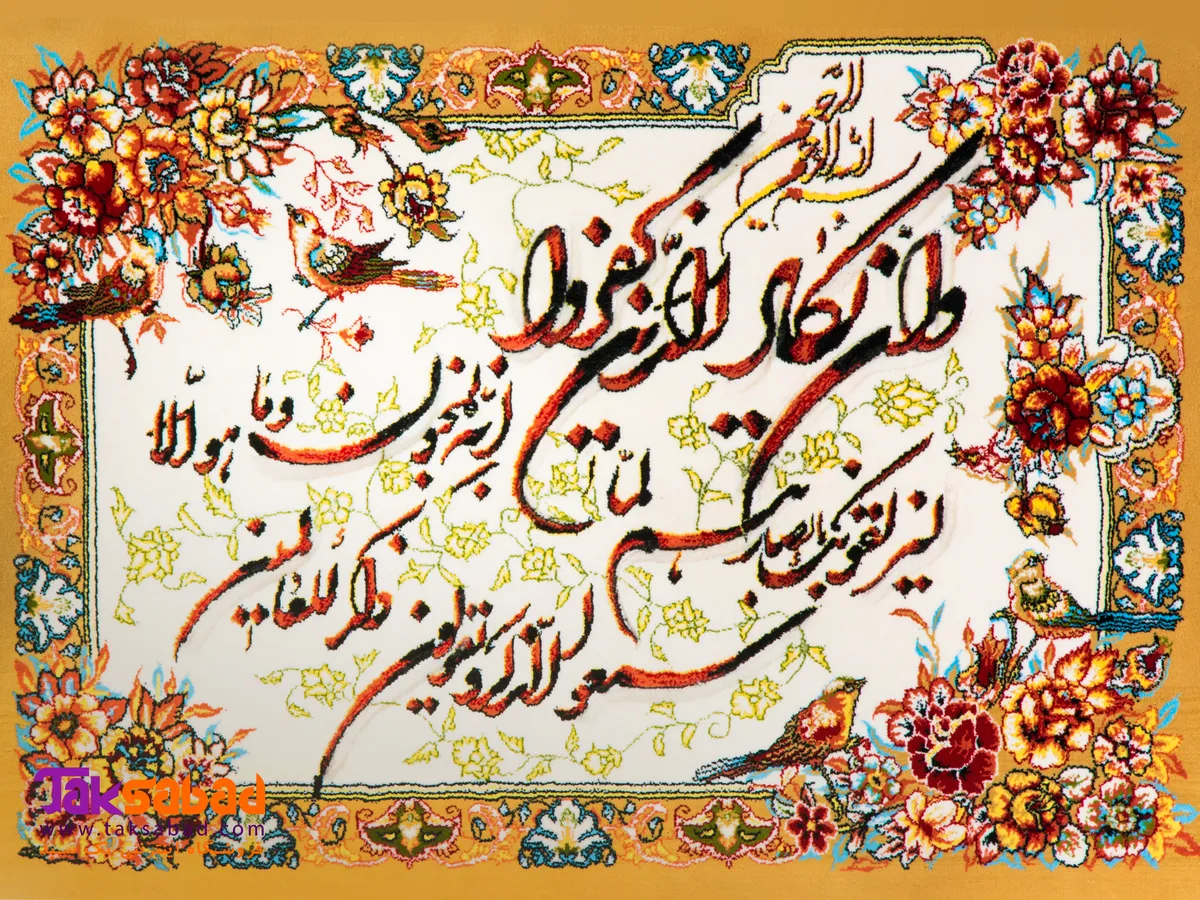 بسم الله الرحمن الرحیم
وان یکاد الذین کفروا
لیزلقونک بابصارهم لما
سمعوا الذکر و یقولون
انه لمجنون وما هو الا
ذکر للعالمین
Taksabad
www.taksabad.com